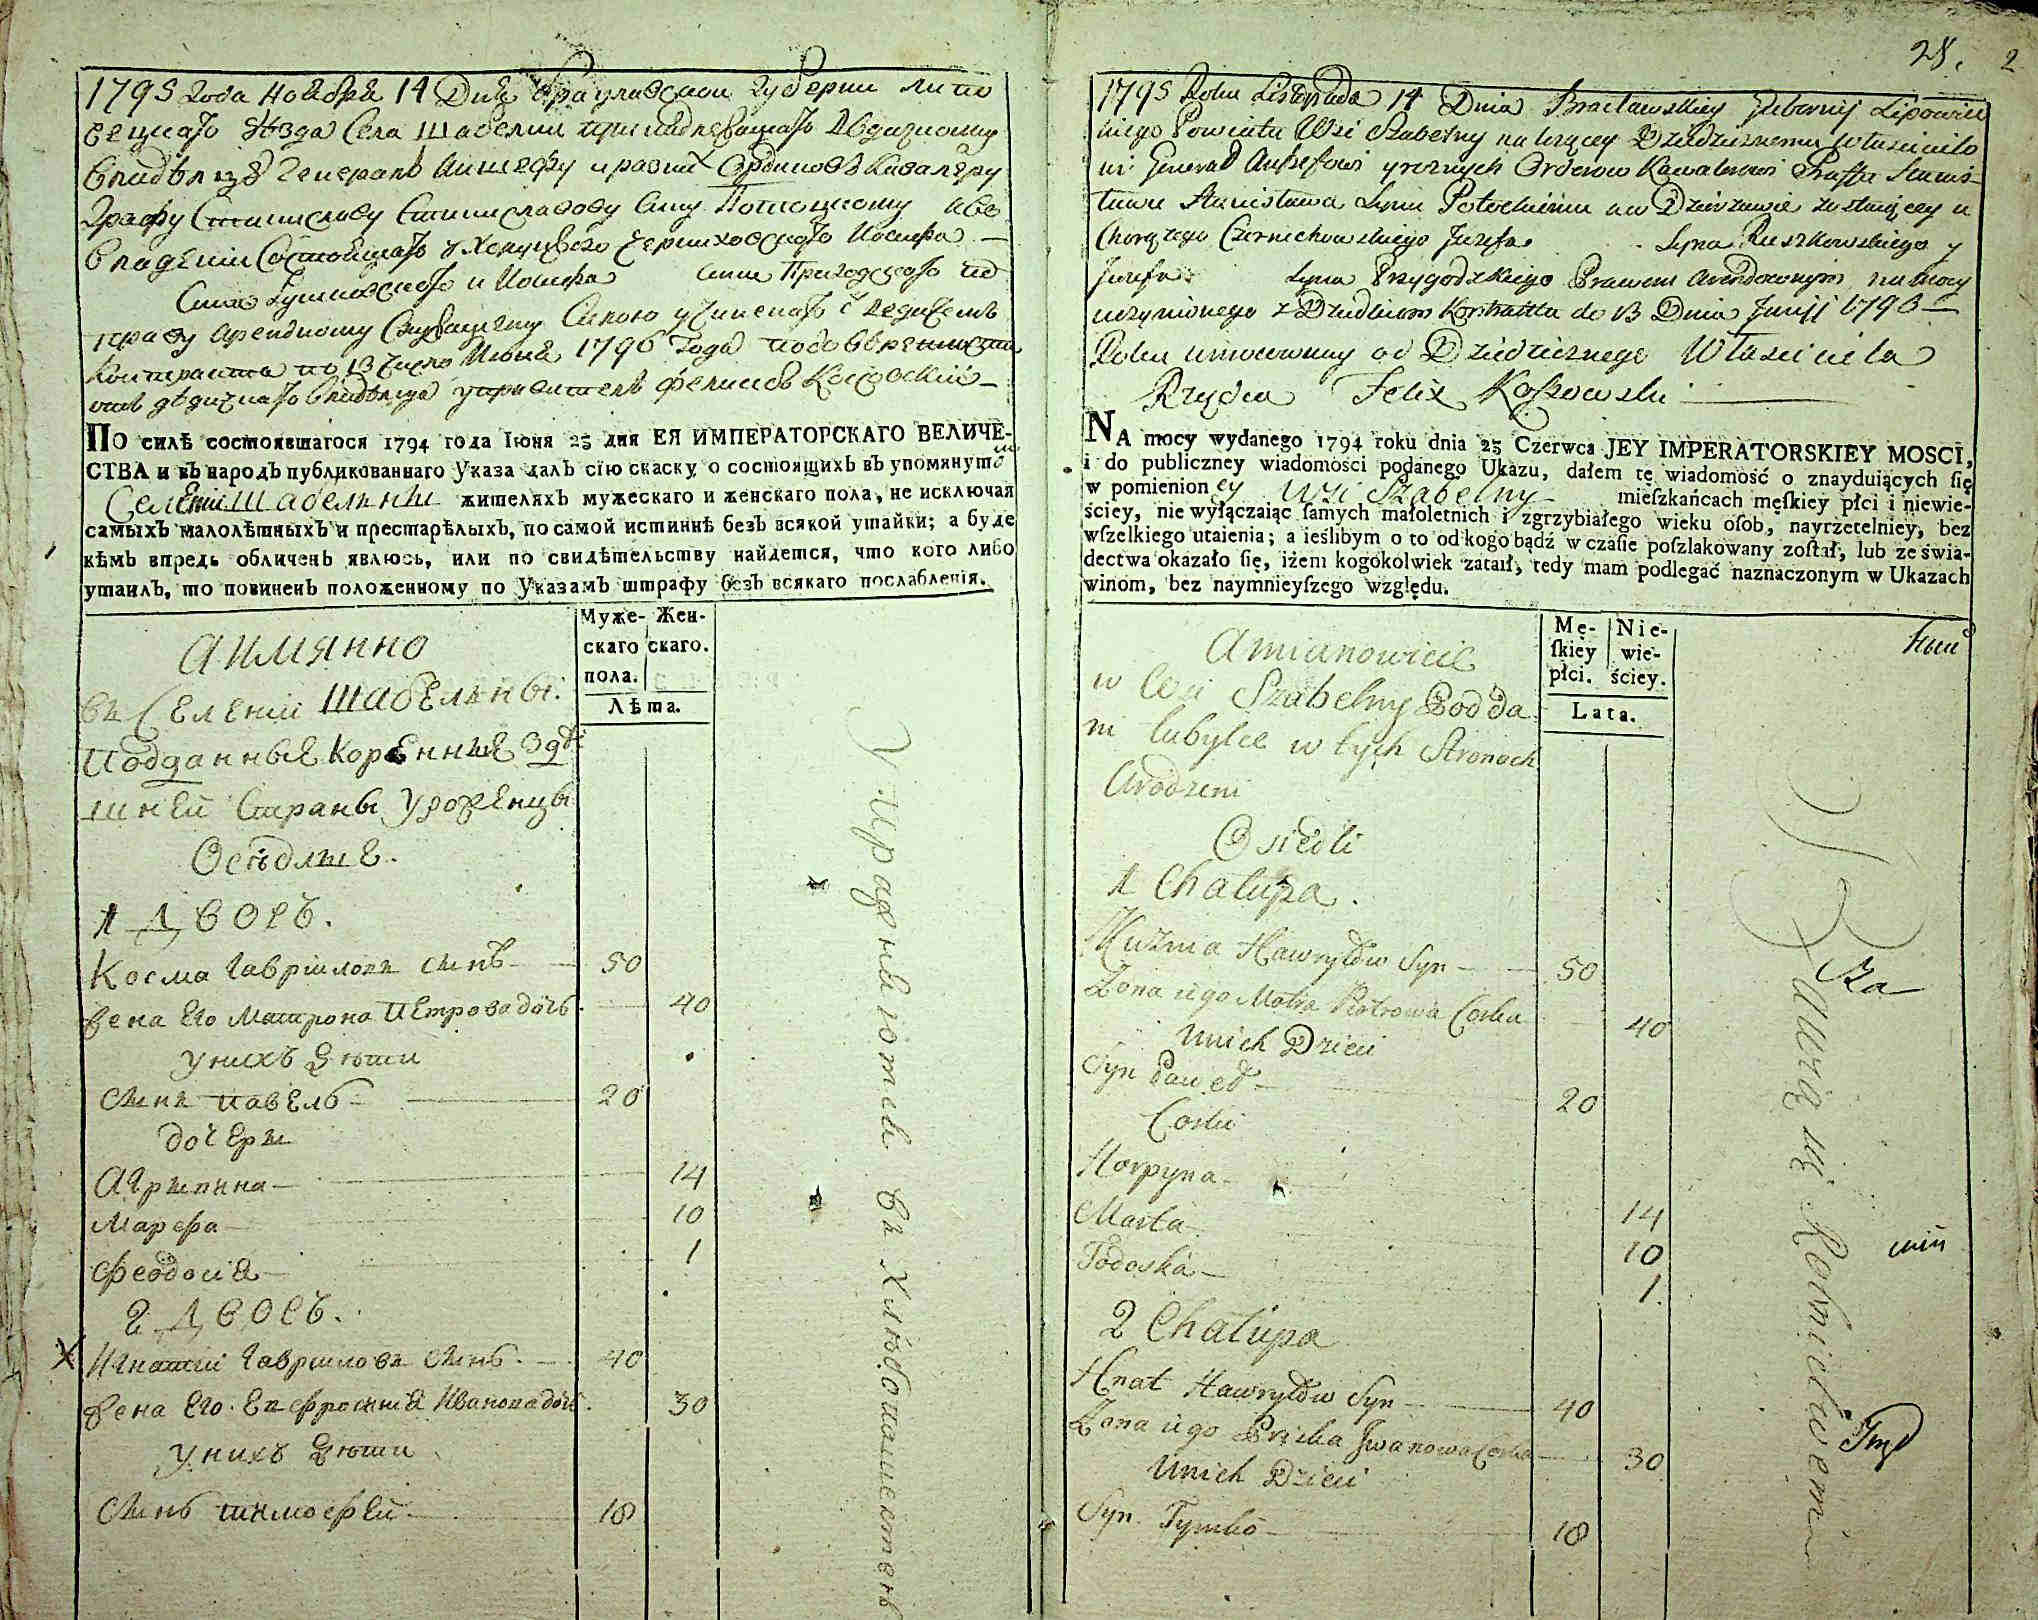 1795 Года Ноября 14 Дня Брацлавской Губернии Липо
вецкаго Уѣзда Села Шабелни принадлежащаго Дѣдичному
владѣлцу Генералъ Аншефу и разныхъ Орденовъ Кавалеру
Графу Станиславу Станиславову сыну Потоцкому а во
владѣнии Состоящаго у Хорунжего Черниховского Иосифа —
Сына Рушковскаго и Иосифа сына Пригодского по
праву арендному Силою учиненаго с Дедичемъ
Контракта по 13 число Июня 1796 Года
отъ дѣдичнаго владѣлца управитель Феликсъ Косовский —
ПО силѣ состоявшагося 1794 года Iюня 23 дня ЕЯ ИМПЕРАТОРСКАГО ВЕЛИЧЕ-
СТВА и въ народъ публикованнаго Указа далъ сію скаску, о состоящихъ въ упомянуто
Селении Шабелни жителяхъ мужескаго и женскаго пола, не исключая
самыхъ малолѣтныхъ и престарѣлыхъ, по самой истиннѣ безъ всякой утайки; а буде
кѣмъ впредь обличенъ явлюсь, или по свидѣтельству найдется, что кого либо
утаилъ, то повиненъ положенному по Указамъ штрафу безъ всякаго послабленія.
Муже- Жен-
скаго скаго.
пола.
Лѣта.
Аимянно
въ Селении Шабелны
Подданные Коренные здѣ
шней Страны Уроженцы
Осѣдлые.
1 Дворъ.
Косма Гавриловъ сынъ — 50
жена Его Матрона Петрова дочь — 40
у нихъ дѣти
сынъ Павелъ — 20
дочери
Агрыпина — 14
Марфа — 10
Феодосия — 1
2 Дворъ.
X Игнатий Гавриловъ сынъ — 40
жена Его Евфросиния Иванова дочь 30
у нихъ дѣти
сынъ тимофей — 18
Упражняются въ хлѣбопашествѣ
28. 2
1795 Roku Listopada 14 Dnia Bracławskiey Gubernij Lipowiec
kiego Powiatu Wsi Szabelny należącey Dziedzicznemu Właścicielo
wi Generał Anszefowi y roznych Orderow Kawalerowi Graffa Stanis-
ława Stanisława Syna Potockiemu a w Dzierżawie zostaiącey u
Chorążego Czernichowskiego Jozefa Syna Ruszkowskiego y
Jozefa Syna Przygodzkiego Prawem Arendownym na mocy
uczynionego z Dziedzicem Kontraktu do 13 Dnia Junij 1796 —
Roku umocowany od Dziedzicznego Właściciela
Rządca Felix Koszowski
NA mocy wydanego 1794 roku dnia 23 Czerwca JEY IMPERATORSKIEY MOSCI,
i do publiczney wiadomości podanego Ukazu, dałem tę wiadomość o znayduiących ſię
w pomienion ey Wsi Szabelny mieſzkańcach męſkiey płci i niewie-
ściey, nie wyłączaiąc ſamych małoletnich i zgrzybiałego wieku oſob, nayrzetelniey, bez
wſzelkiego utaienia; a ieślibym o to od kogo bądź w czaſie poſzlakowany zoſtał, lub ze świa-
dectwa okazało ſię, iżem kogokolwiek zataił, tedy mam podlegać naznaczonym w Ukazach
winom, bez naymnieyſzego względu.
Mę- Nie-
ſkiey wie-
płci. ściey.
Lata.
Amianowicie
w Wsi Szabelny Podda
ni tubylce w tych Stronach
Urodzeni
Osiedli
1 Chałupa.
Kuzma Hawryłow Syn — 50
Zona iego Motra Piotrowa Corka 40
U nich Dzieci
Syn Paweł — 20
Corki
Horpyna — 14
Marta — 10
Todoska — 1
2 Chałupa
Hnat Hawryłow Syn — 40
Zona iego Pryska Jwanowa Corka — 30
U nich Dzieci
Syn Tymko — 18
Bawią się Rolnictwem